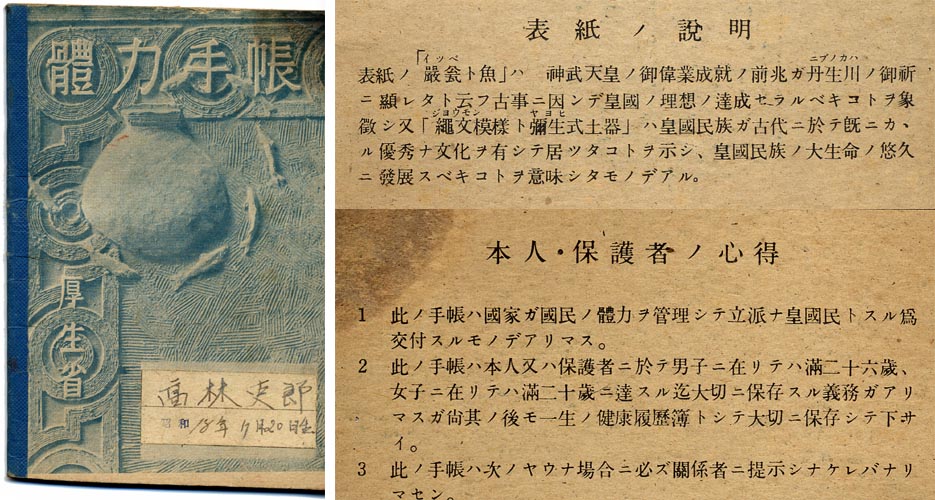 體力手帳
厚生省
高林 郎
昭和 18年 11月20日生
表紙ノ說明
イツベ ニブノカハ
表紙ノ「嚴瓮ト魚」ハ 神武天皇ノ御偉業成就ノ前兆ガ丹生川ノ御祈
ニ顯レタト云フ古事ニ因ンデ皇國ノ理想ノ達成セラルベキコトヲ象
ジョウモン ヤヨヒ
徵シ又「繩文模樣ト彌生式土器」ハ皇國民族ガ古代ニ於テ旣ニカヽ
ル優秀ナ文化ヲ有シテ居ツタコトヲ示シ、皇國民族ノ大生命ノ悠久
ニ發展スベキコトヲ意味シタモノデアル。
本人・保護者ノ心得
1 此ノ手帳ハ國家ガ國民ノ體力ヲ管理シテ立派ナ皇國民トスル爲
交付スルモノデアリマス。
2 此ノ手帳ハ本人又ハ保護者ニ於テ男子ニ在リテハ滿二十六歲、
女子ニ在リテハ滿二十歲ニ達スル迄大切ニ保存スル義務ガアリ
マスガ尙其ノ後モ一生ノ健康履歷簿トシテ大切ニ保存シテ下サ
イ。
3 此ノ手帳ハ次ノヤウナ場合ニ必ズ關係者ニ提示シナケレバナリ
マセン。